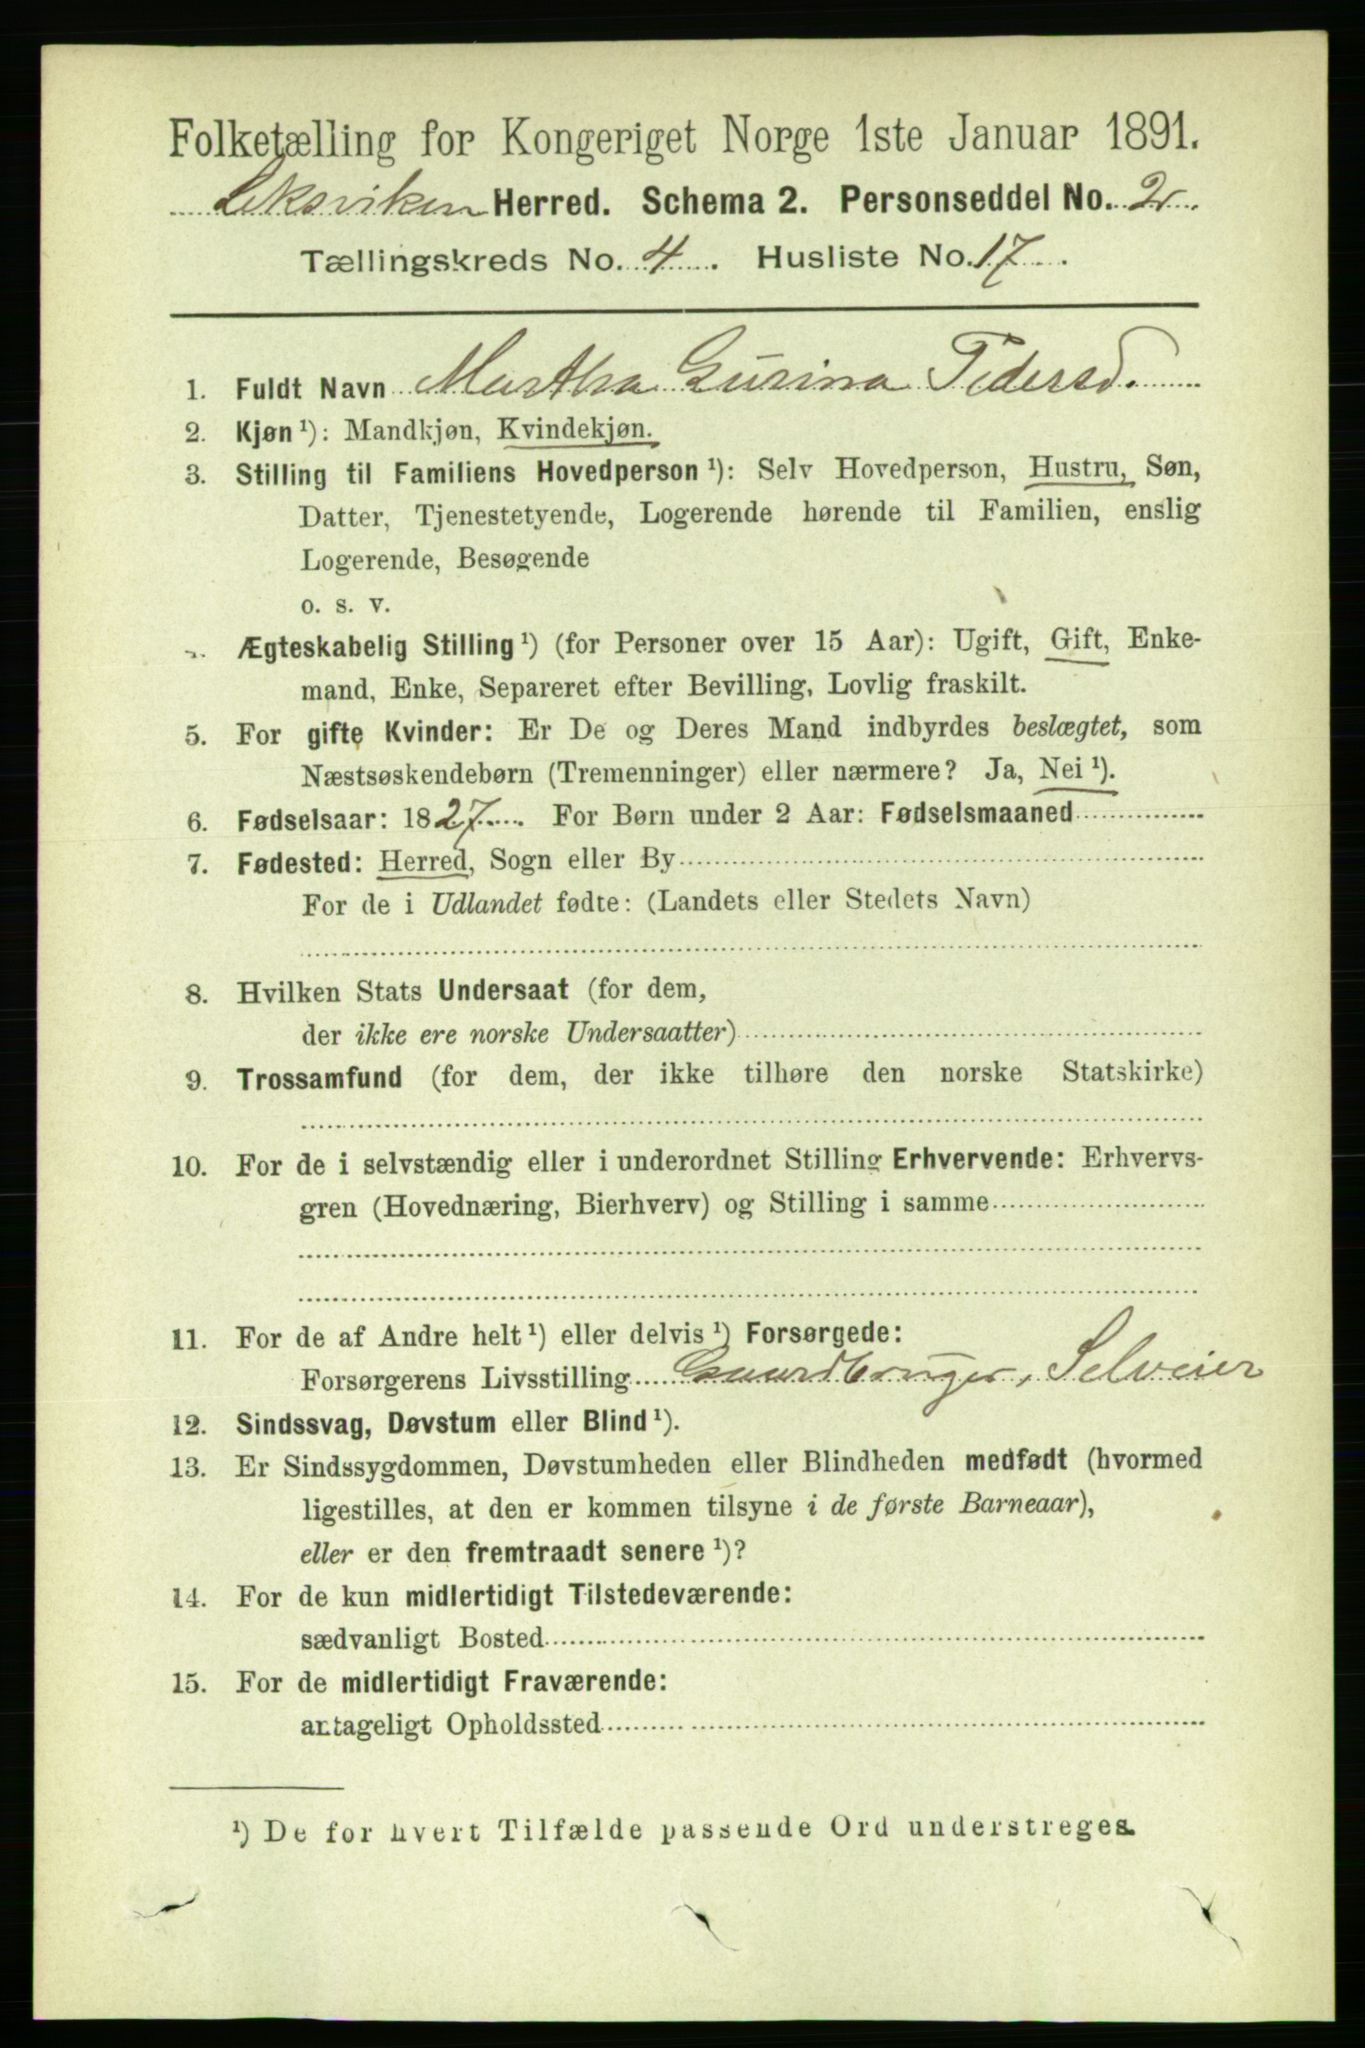 Folketælling for Kongeriget Norge 1ste Januar 1891.
Leksviken Herred. Schema 2. Personseddel No. 2
Tællingskreds No. 4. Husliste No. 17.
1. Fuldt Navn Martha Gurina Pedersd.
2. Kjøn ¹): Mandkjøn, Kvindekjøn.
3. Stilling til Familiens Hovedperson ¹): Selv Hovedperson, Hustru, Søn,
Datter, Tjenestetyende, Logerende hørende til Familien, enslig
Logerende, Besøgende
o. s. v.
Ægteskabelig Stilling ¹) (for Personer over 15 Aar): Ugift, Gift, Enke-
mand, Enke, Separeret efter Bevilling, Lovlig fraskilt.
5. For gifte Kvinder: Er De og Deres Mand indbyrdes beslægtet, som
Næstsøskendebørn (Tremenninger) eller nærmere? Ja, Nei ¹).
6. Fødselsaar: 1827. For Børn under 2 Aar: Fødselsmaaned
7. Fødested: Herred, Sogn eller By
For de i Udlandet fødte: (Landets eller Stedets Navn)
8. Hvilken Stats Undersaat (for dem,
der ikke ere norske Undersaatter)
9. Trossamfund (for dem, der ikke tilhøre den norske Statskirke)
10. For de i selvstændig eller i underordnet Stilling Erhvervende: Erhvervs-
gren (Hovednæring, Bierhverv) og Stilling i samme
11. For de af Andre helt ¹) eller delvis ¹) Forsørgede:
Forsørgerens Livsstilling Gaardbruger, Selveier
12. Sindssvag, Døvstum eller Blind ¹).
13. Er Sindssygdommen, Døvstumheden eller Blindheden medfødt (hvormed
ligestilles, at den er kommen tilsyne i de første Barneaar),
eller er den fremtraadt senere ¹)?
14. For de kun midlertidigt Tilstedeværende:
sædvanligt Bosted
15. For de midlertidigt Fraværende:
antageligt Opholdssted
¹) De for hvert Tilfælde passende Ord understreges.